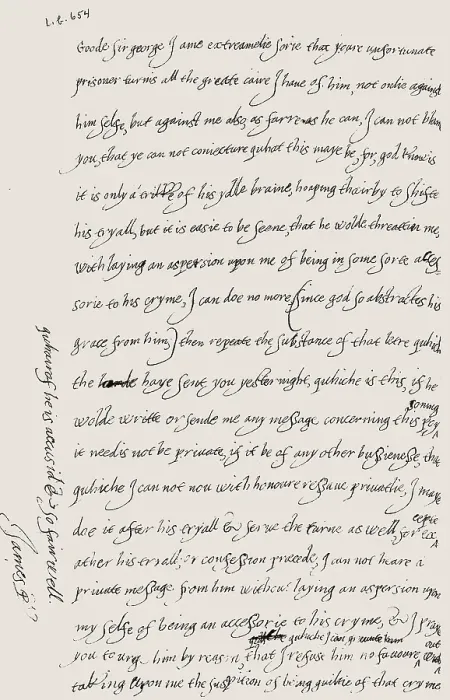 L.b. 654
Goode Sir george I ame extreamelie sorie that youre unfortunate
prisoner turnis all the greate caire I have of him, not onlie against
him selfe, but against me also, as farre as he can, I can not blame
you, that ye can not coniecture quhat this maye be, for, god knowis
it is only a trikke of his ydle braine, hoaping thairby to shifte
his tryall, but it is easie to be seene, that he wolde threattin me,
with laying an aspersion upon me of being in some sorte acces-
sorie to his cryme, I can doe no more (since god so abstractes his
grace from him,) then repeate the substance of that letre quhich
the haye sent you yesternight, quhiche is this, if he
wolde write or sende me any message concerning this poysoning
it needis not be privute, if it be of any other bussienesse, that
quhiche I can not nou with honoure ressave privatlie, I maye
doe it after his tryall & serve the turne as well, for excepte
ather his tryall, or confession precede, I can not heare a
private message from him without laying an aspersion upon
my selfe of being an accessorie to his cryme, & I praye
quhiche I can graunte him
you to urge him by reason that I refuse him no favoure without
taking upon me the suspition of being guiltie of that cryme
quhairof he is accusid & so fairwell.
James R